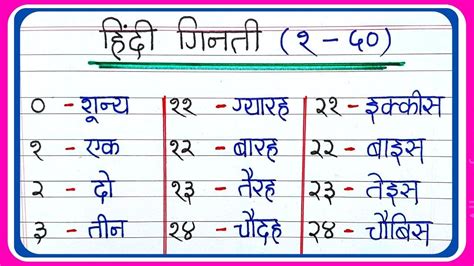 हिंदी गिनती (१ - ५०)
० - शून्य ११ - ग्यारह २१ - इक्कीस
१ - एक १२ - बारह २२ - बाइस
२ - दो १३ - तेरह २३ - तेइस
३ - तीन १४ - चौदह २४ - चौबिस